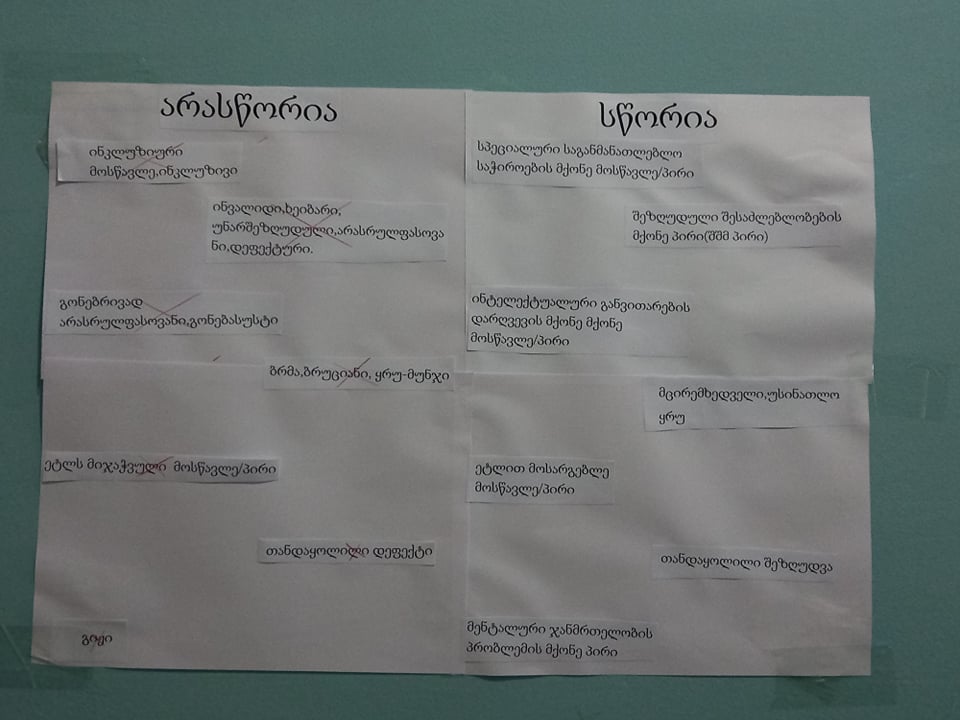 არასწორია
სწორია
ინკლუზიური
მოსწავლე,ინკლუზივი
სპეციალური საგანმანათლებლო
საჭიროების მქონე მოსწავლე/პირი
ინვალიდი,ხეიბარი,
უნარშეზღუდული,არასრულფასოვა
ნი,დეფექტური.
შეზღუდული შესაძლებლობების
მქონე პირი(შშმ პირი)
გონებრივად
არასრულფასოვანი,გონებასუსტი
ინტელექტუალური განვითარების
დარღვევის მქონე მქონე
მოსწავლე/პირი
ბრმა,ბრუციანი, ყრუ-მუნჯი
მცირემხედველი,უსინათლო
ყრუ
ეტლს მიჯაჭვული მოსწავლე/პირი
ეტლით მოსარგებლე
მოსწავლე/პირი
თანდაყოლილი დეფექტი
თანდაყოლილი შეზღუდვა
გიჟი
მენტალური ჯანმრთელობის
პრობლემის მქონე პირი